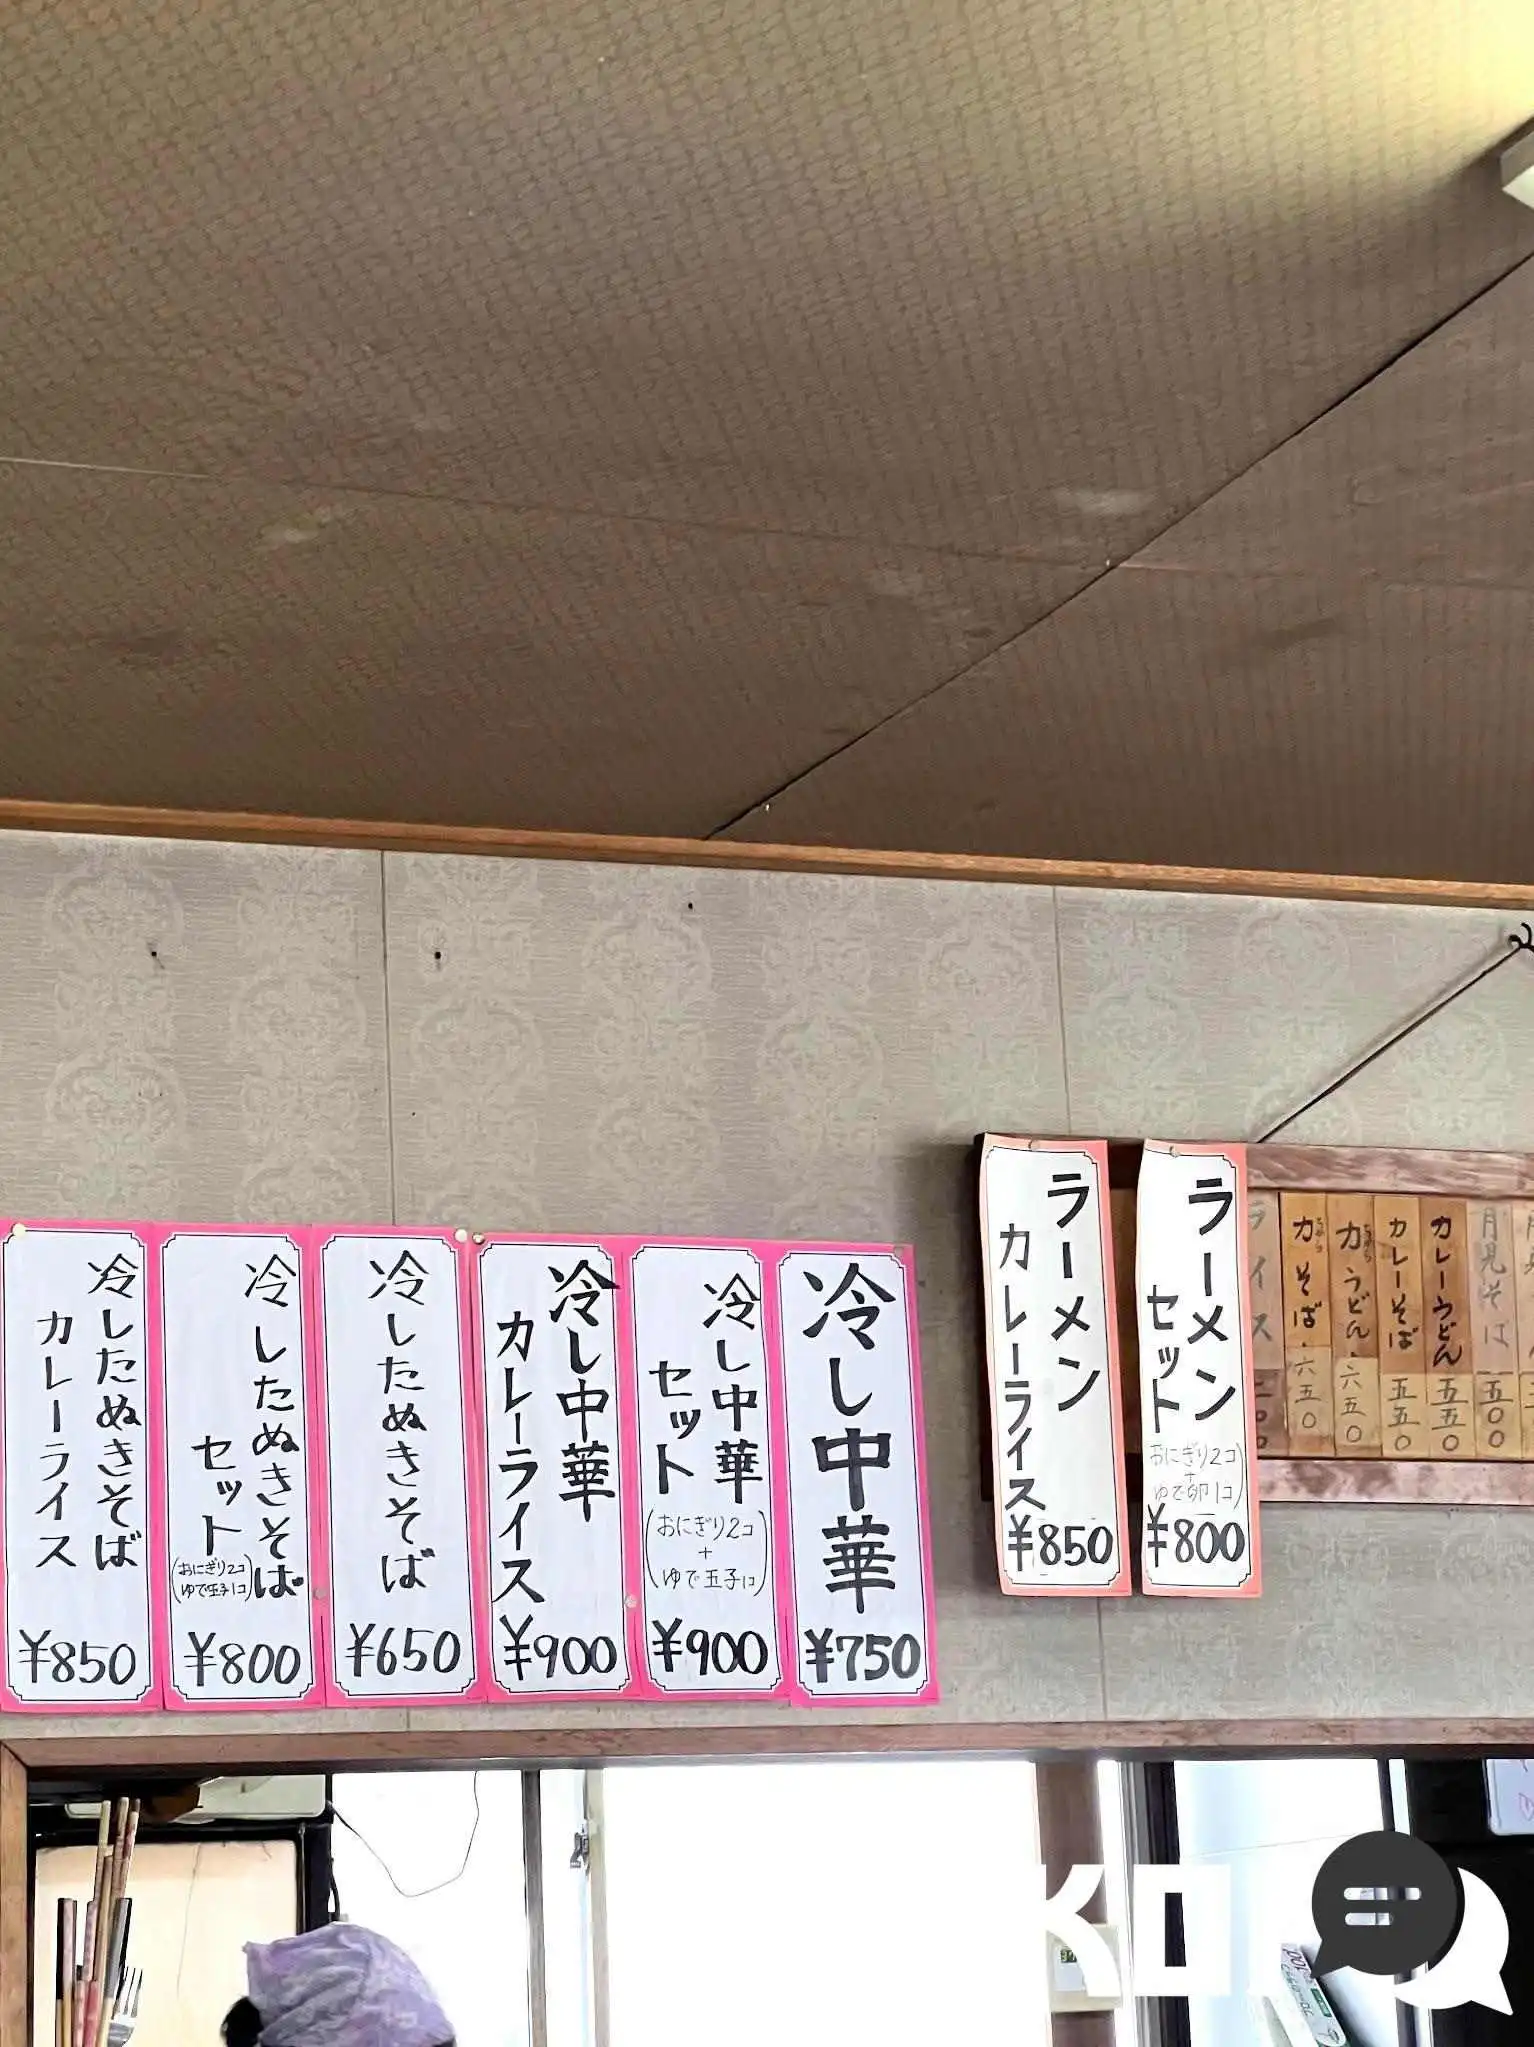 冷し中華
¥750
冷し中華
セット
(おにぎり2コ
+
ゆで玉子1コ)
¥900
冷し中華
カレーライス
¥900
冷したぬきそば
¥650
冷したぬきそば
セット
(おにぎり2コ
ゆで玉子1コ)
¥800
冷したぬきそば
カレーライス
¥850
ラーメン
セット
おにぎり2コ
+
ゆで卵1コ
¥800
ラーメン
カレーライス
¥850
月見そば 五〇〇
カレーうどん 五五〇
カレーそば 五五〇
力うどん 六五〇
力そば 六五〇
ライス